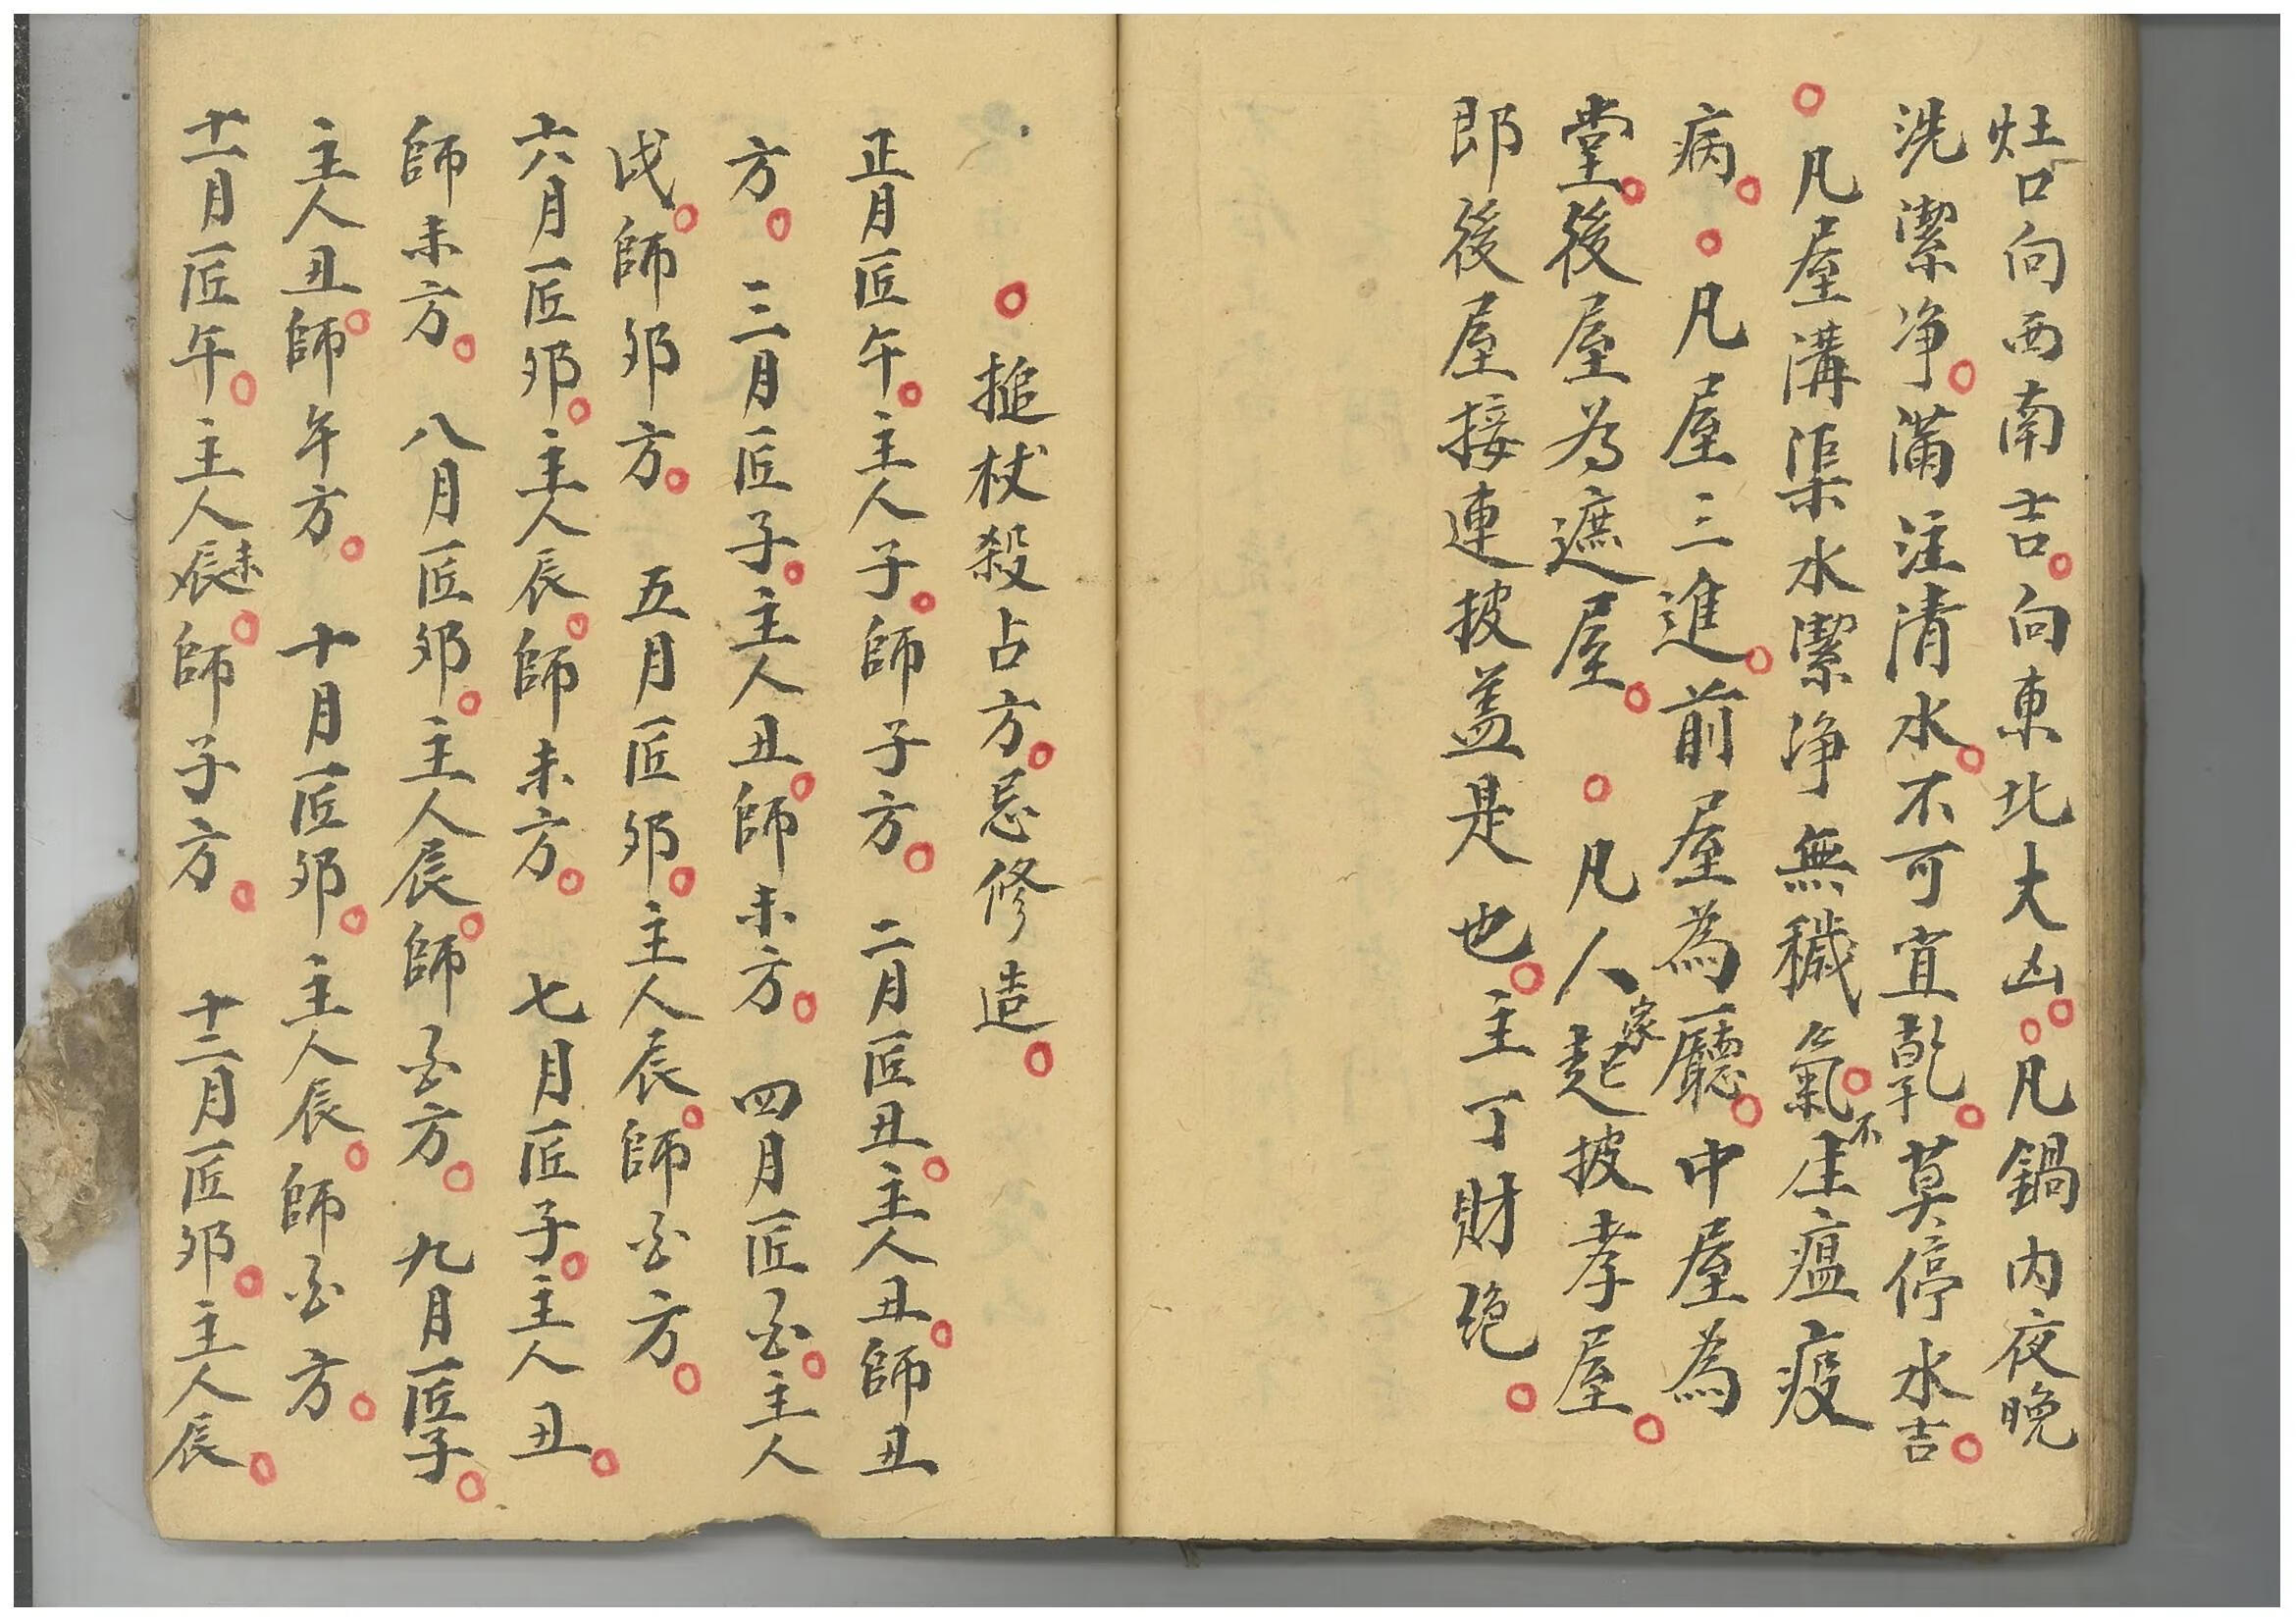 灶口向西南吉。向東北大凶。。凡鍋内夜晚
洗潔净。滿注清水。不可宜乾。莫停水吉。
。凡屋溝渠水潔净無穢氣。不生瘟疫
病。。凡屋三進。前屋為廳。中屋為
堂。後屋為遮屋。。凡人家起披孝屋。
即後屋接連披盖是也。主丁財绝。
。搥杖殺占方。忌修造。
正月匠午。主人子。師子方。 二月匠丑。主人丑。師丑
方。 三月匠子。主人丑。師未方。 四月匠酉。主人
戌。師卯方。 五月匠卯。主人辰。師酉方。
六月匠卯。主人辰。師未方。 七月匠子。主人丑。
師未方。 八月匠卯。主人辰。師酉方。 九月匠子。
主人丑。師午方。 十月匠卯。主人辰。師酉方。
十一月匠午。主人辰未。師子方。 十二月匠卯。主人辰。